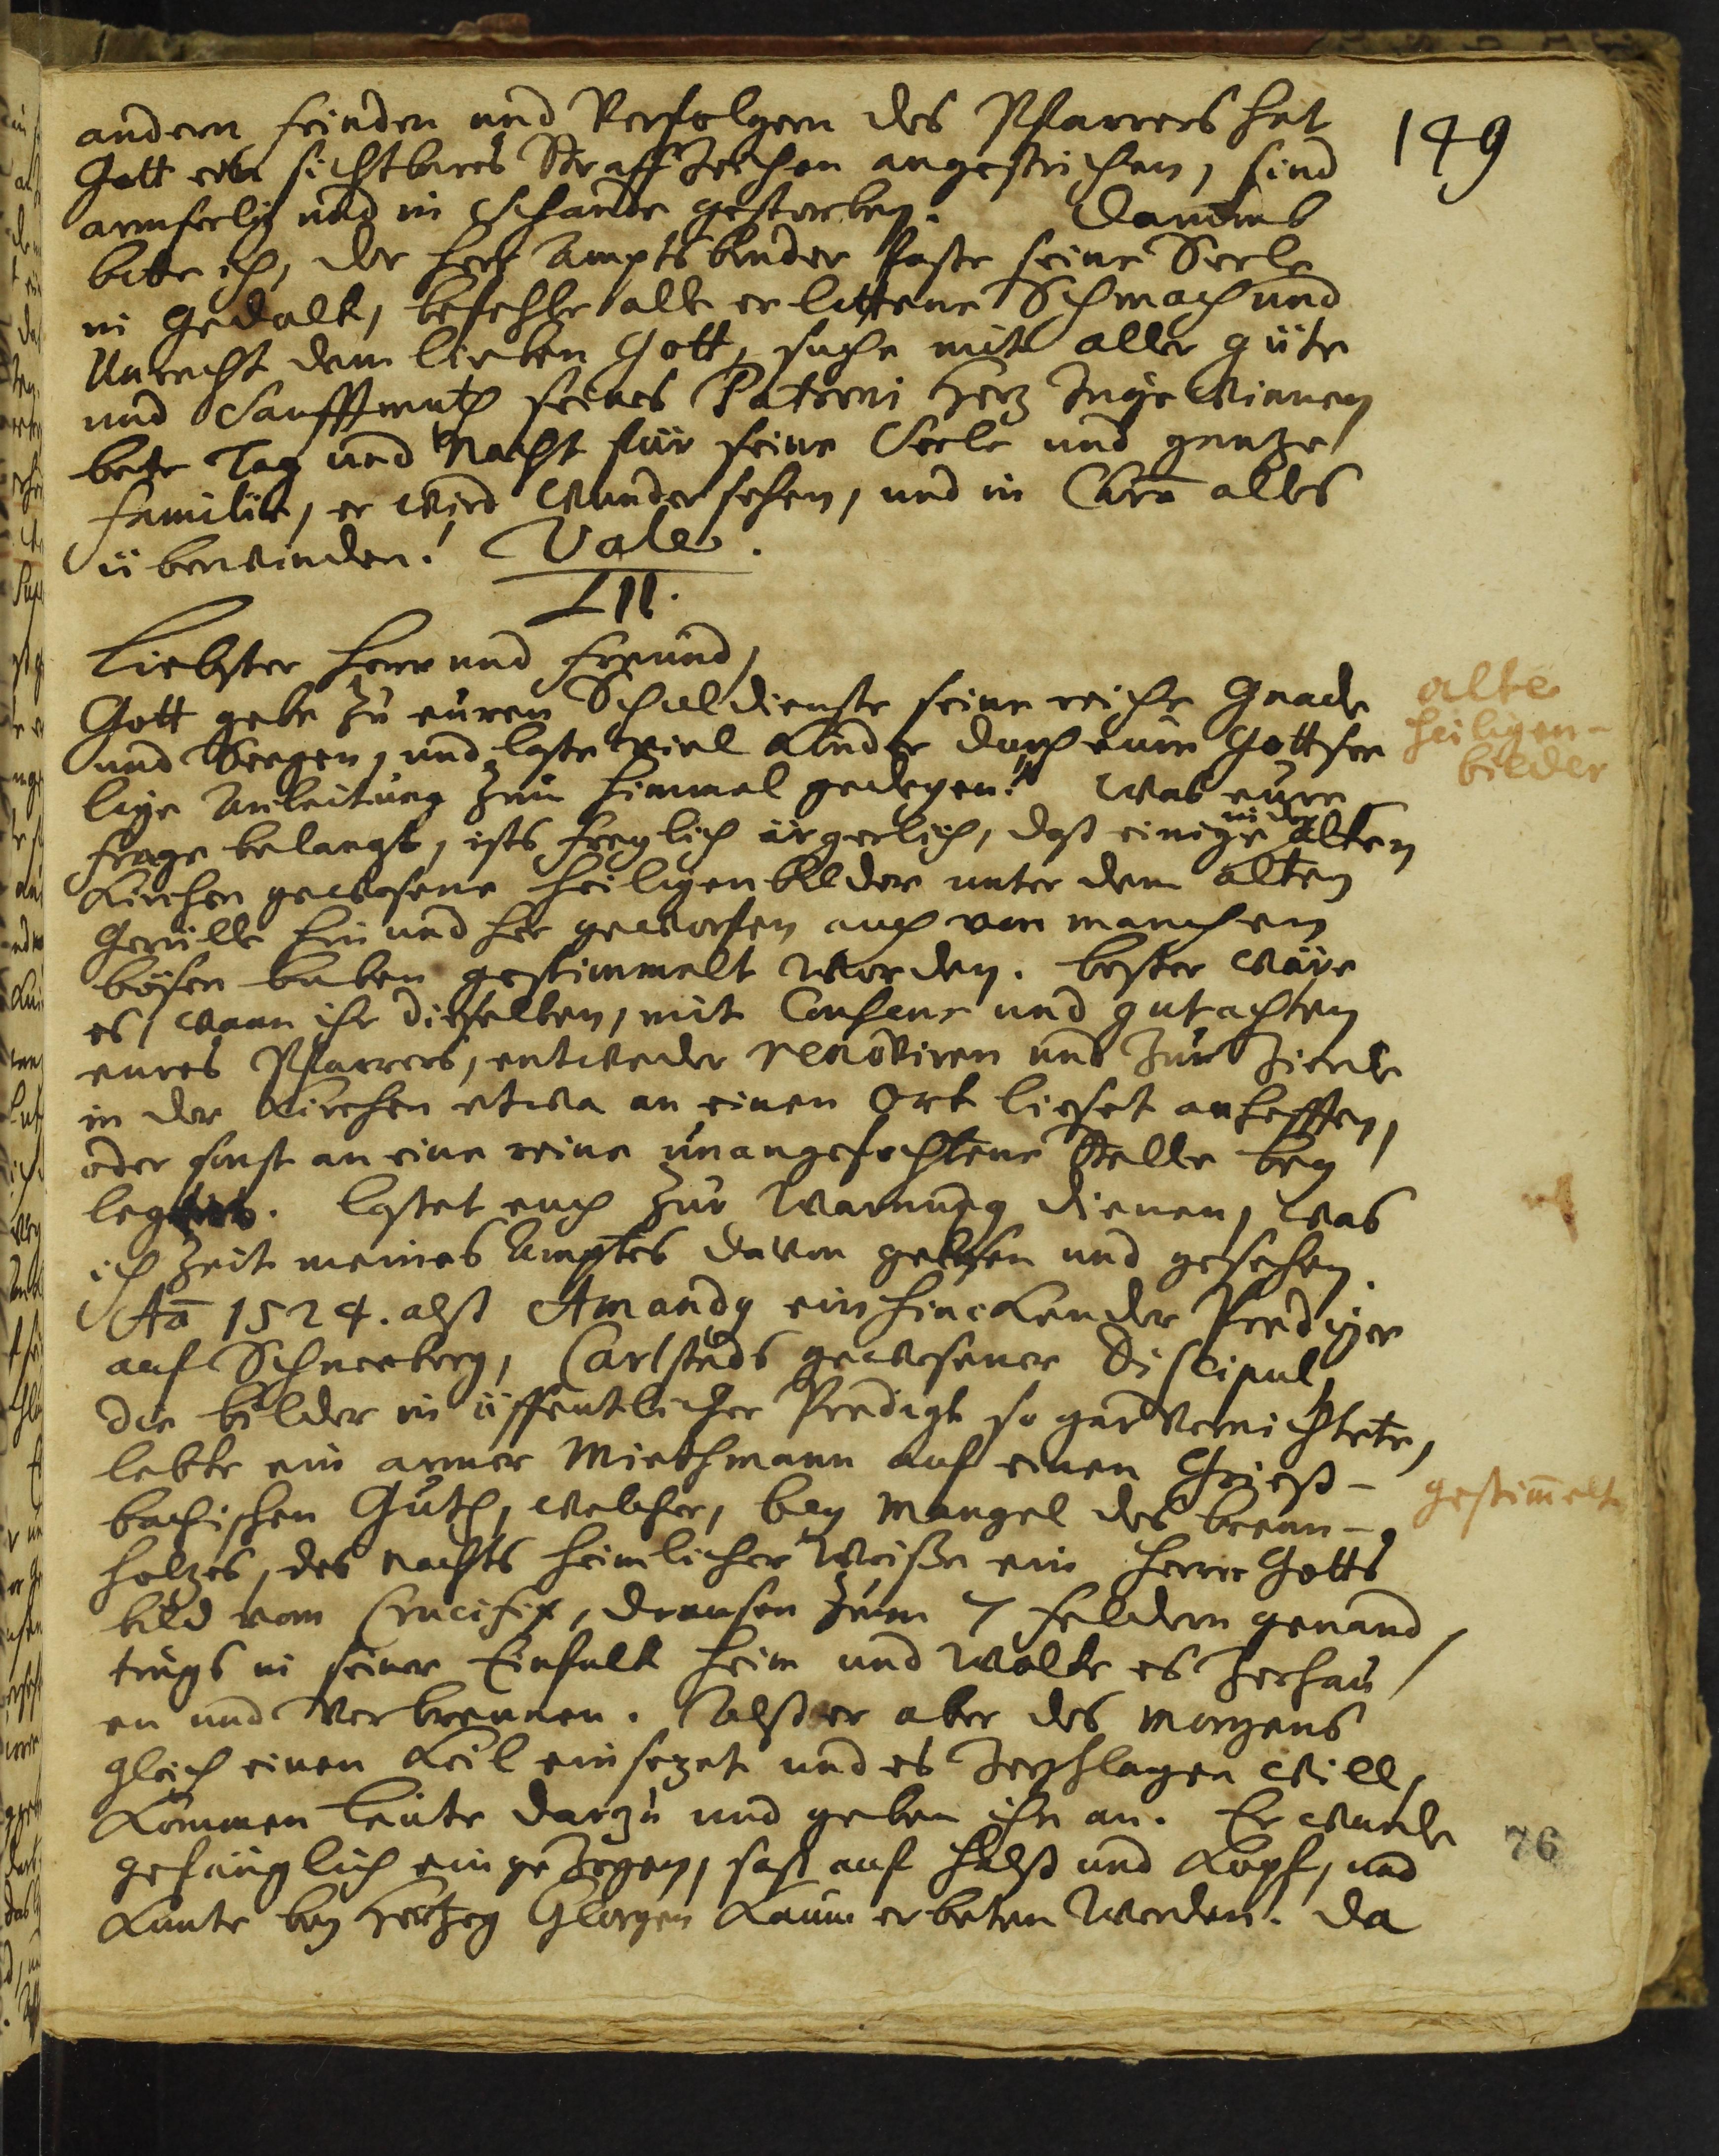 149
andern feinden und Verfolgern des Pfarrers hat
Gott ein sichtbares Straffzeichen angestrichen, sind
armselig und in Schande gestorben. Darumb
bitte ich, der Herr Ampts bruder faste seine Seele
in Gedult, befehle alle erlittene Schmach und
Unrecht dem lieben Gott, suche mit aller güte
und Sanfftmuth seines Patroni Herz zugewinnen
bete Tag und Nacht für seine Seele und gantze
familie, er wird wunder sehen, und in alles
überwinden! Vale.
III.
Liebster Herr und freund,
Gott gebe zu euren Schuldienste seine reiche Gnade
und Seegen, und laste viel Kinder durch eure Gottsee
lige Anleitung zum Himmel gedeyen! Was eure
frage belangt, ists freylich ärgerlich, daß einige in der alten
Kirchen gewesene Heiligenbilder unter dem alten
Gerülle hin und her geworfen auch von manchen
bösen buben gestimmelt worden. bester wäre
es, wann ihr dieselben, mit Consens und gutachten
eures Pfarrers, entweder renoviren und zur Zierde
in der Kirchen etwa an einen Ort lieset anhefften,
oder sonst an eine reine unangefochtene Stelle bey
legtet. Lastet euch zur Warnung dienen, was
ich Zeit meines Amptes davon gelesen und gesehen.
Aō 1524. alß Amandg ein hinckender Prediger
auf Schneeberg, Carlstads gewesener Discipul,
die bilder in öffentlicher Predigt so gar vernichtete,
lebte ein armer Miethmann auf einen Grieß-
bachischen Guth, welcher, bey Mangel des brenn-
holzes, des Nachts heimlicher Weiße ein Herre Gotts
bild vom Crucifix, draussen zum 7 feldern genand,
trugs in seiner Einfalt heim und wolte es zerhau
en und verbrennen. Alß er aber des Morgens
gleich einen Keil einsezet und es zerschlagen will,
kommen Leute darzu und geben ihn an. Er wurde
gefänglich eingezogen, saß auf Halß und Kopf, und
kunte bey Hertzog Georgen kaum erbeten werden. Da
alte
heiligen-
bilder
gestim̄elt
76